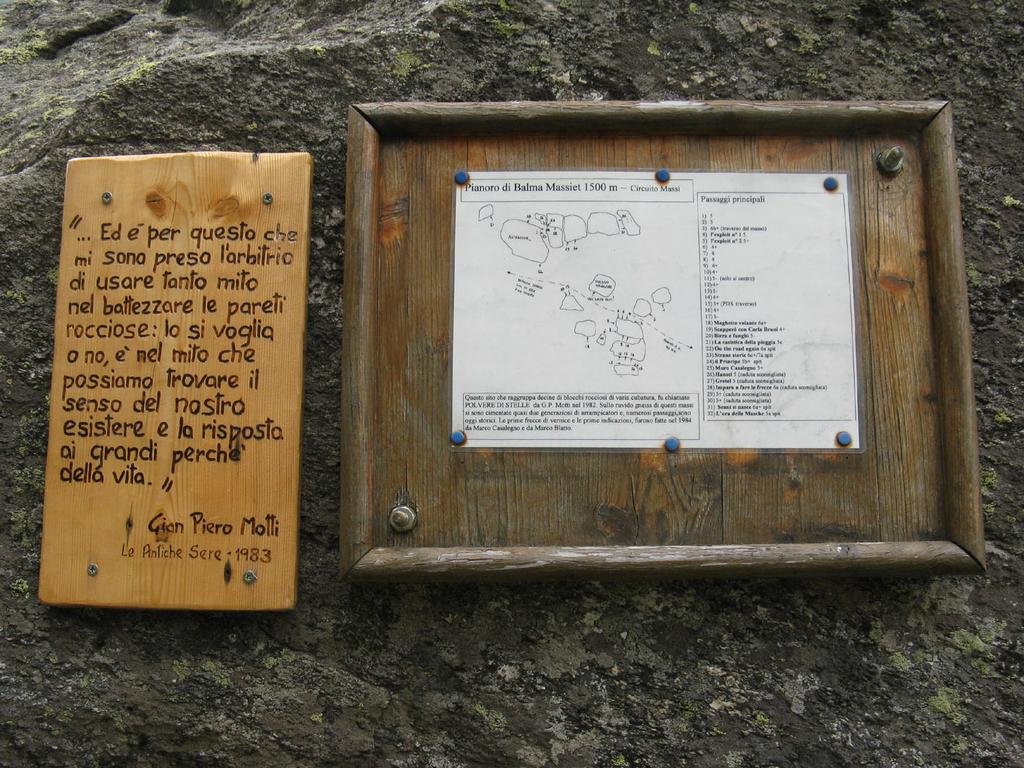 "... Ed e' per questo che
mi sono preso l'arbitrio
di usare tanto mito
nel battezzare le pareti
rocciose: lo si voglia
o no, e' nel mito che
possiamo trovare il
senso del nostro
esistere e la risposta
ai grandi perche'
della vita. "
Gian Piero Motti
Le Antiche Sere - 1983
Pianoro di Balma Massiet 1500 m – Circuito Massi
Questo sito che raggruppa decine di blocchi rocciosi di varia cubatura, fu chiamato
POLVERE DI STELLE da G.P. Motti nel 1982. Sullo ruvido gneiss di questi massi
si sono cimentate quasi due generazioni di arrampicatori e, numerosi passaggi, sono
oggi storici. Le prime frecce di vernice e le prime indicazioni, furono fatte nel 1984
da Marco Casalegno e da Marco Blatto.
Passaggi principali
1) 5
2) 5
3) 6b+ (traverso del masso)
4) l'exploit n° 1 5
5) l'exploit n° 2 5+
6) 4+
7) 4
8) 4
9) 4+
10) 4+
11) 5- (solo al centro)
12) 4+
13) 5-
14) 4+
15) 5+ (PDS traverso)
16) 4+
17) 5-
18) Maghetto volante 6a+
19) Scappero con Carla Bruni 4+
20) Birra e funghi 5-
21) La casistica della pioggia 5c
22) On the road again 6a spit
23) Strane storie 6c+/7a spit
24) il Principe 5b+ spit
25) Muro Casalegno 5+
26) Hansel 5 (caduta sconsigliata)
27) Gretel 5 (caduta sconsigliata)
28) Impara a fare le frecce 6a (caduta sconsigliata)
29) 5+ (caduta sconsigliata)
30) 5+ (caduta sconsigliata)
31) Sensi si nasce 6a+ spit
32) L'ora delle Masche 5a spit